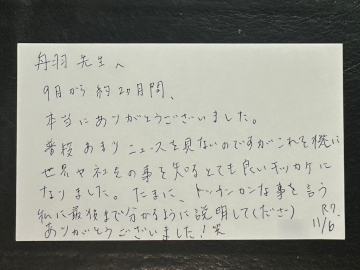 丹羽 先生へ
9月から約2カ月間、
本当にありがとうございました。
普段あまりニュースを見ないのですがこれを機に
世界や社会の事を知るとても良いキッカケに
なりました。たまに、トンチンカンな事を言う
私に最後まで分かるように説明して(ださ)
ありがとうございました!笑
R7.
11/6